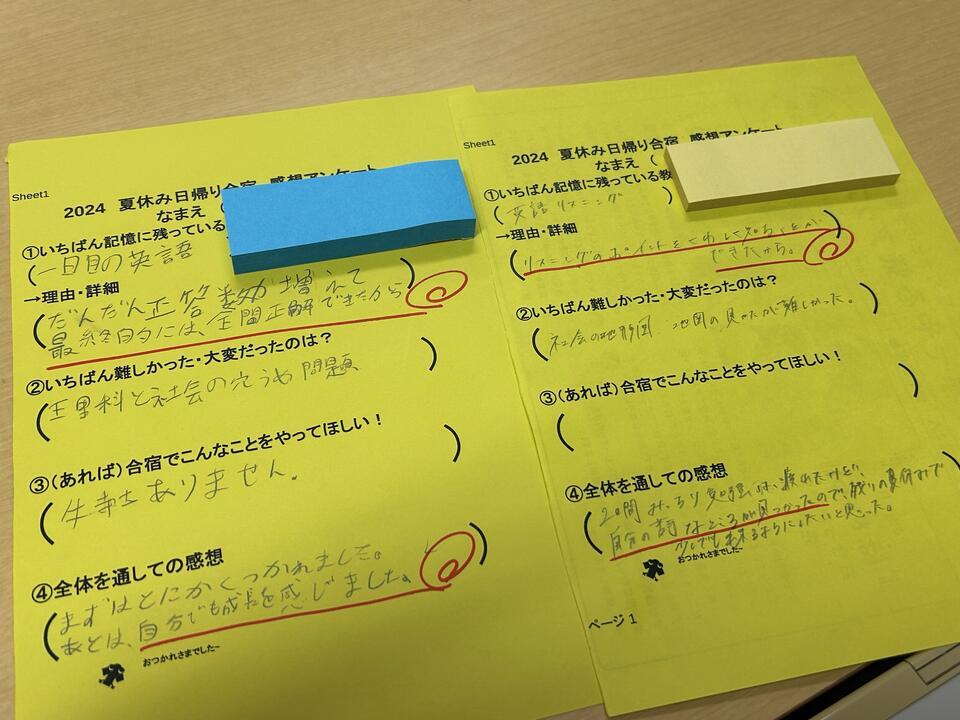 Sheet1
2024 夏休み日帰り合宿 感想アンケート
なまえ (
①いちばん記憶に残っている
(一日目の英語
→理由・詳細
(だんだん正答数が増えて
最終的には、全問正解できたから)
②いちばん難しかった・大変だったのは?
(理科と社会の穴うめ問題
)
③(あれば)合宿でこんなことをやってほしい!
(特にありません。
)
④全体を通しての感想
(まずはとにかくつかれました。
あとは、自分でも成長を感じました。)
おつかれさまでした~
Sheet1
2024 夏休み日帰り合宿 感想アンケート
なまえ (
①いちばん記憶に残っている教
(英語リスニング )
→理由・詳細
(リスニングのポイントをくわしく知ることが
できたから。)
②いちばん難しかった・大変だったのは?
(社会の地形図 地図の見かたが難しかった。)
③(あれば)合宿でこんなことをやってほしい!
( )
④全体を通しての感想
(2日間みっちり勉強は、疲れたけど、
自分の苦手なところが見つかったので、残りの夏休みで
少しでも出来るようにしたいと思った。
おつかれさまでした~
ページ 1